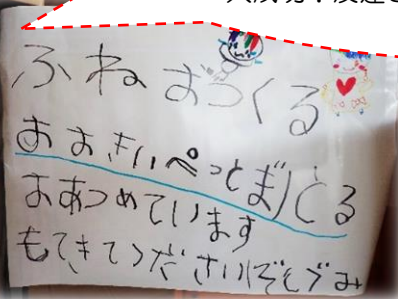 ふねおつくる
おおきいぺっとぼとる
おあつめています
もてきてください